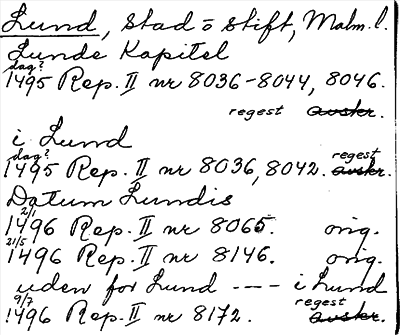 Lund, stad o stift, Malm. l.
Lunde Kapitel
dag?
1495 Rep. II nr 8036-8044, 8046.
regest avskr.
i Lund
dag? regest
1495 Rep. II nr 8036, 8042. avskr.
Datum Lundis
2/1
1496 Rep. II nr 8065. orig.
21/5
1496 Rep. II nr 8146. orig.
uden for Lund ---- i Lund
9/7 regest
1496 Rep. II nr 8172. avskr.